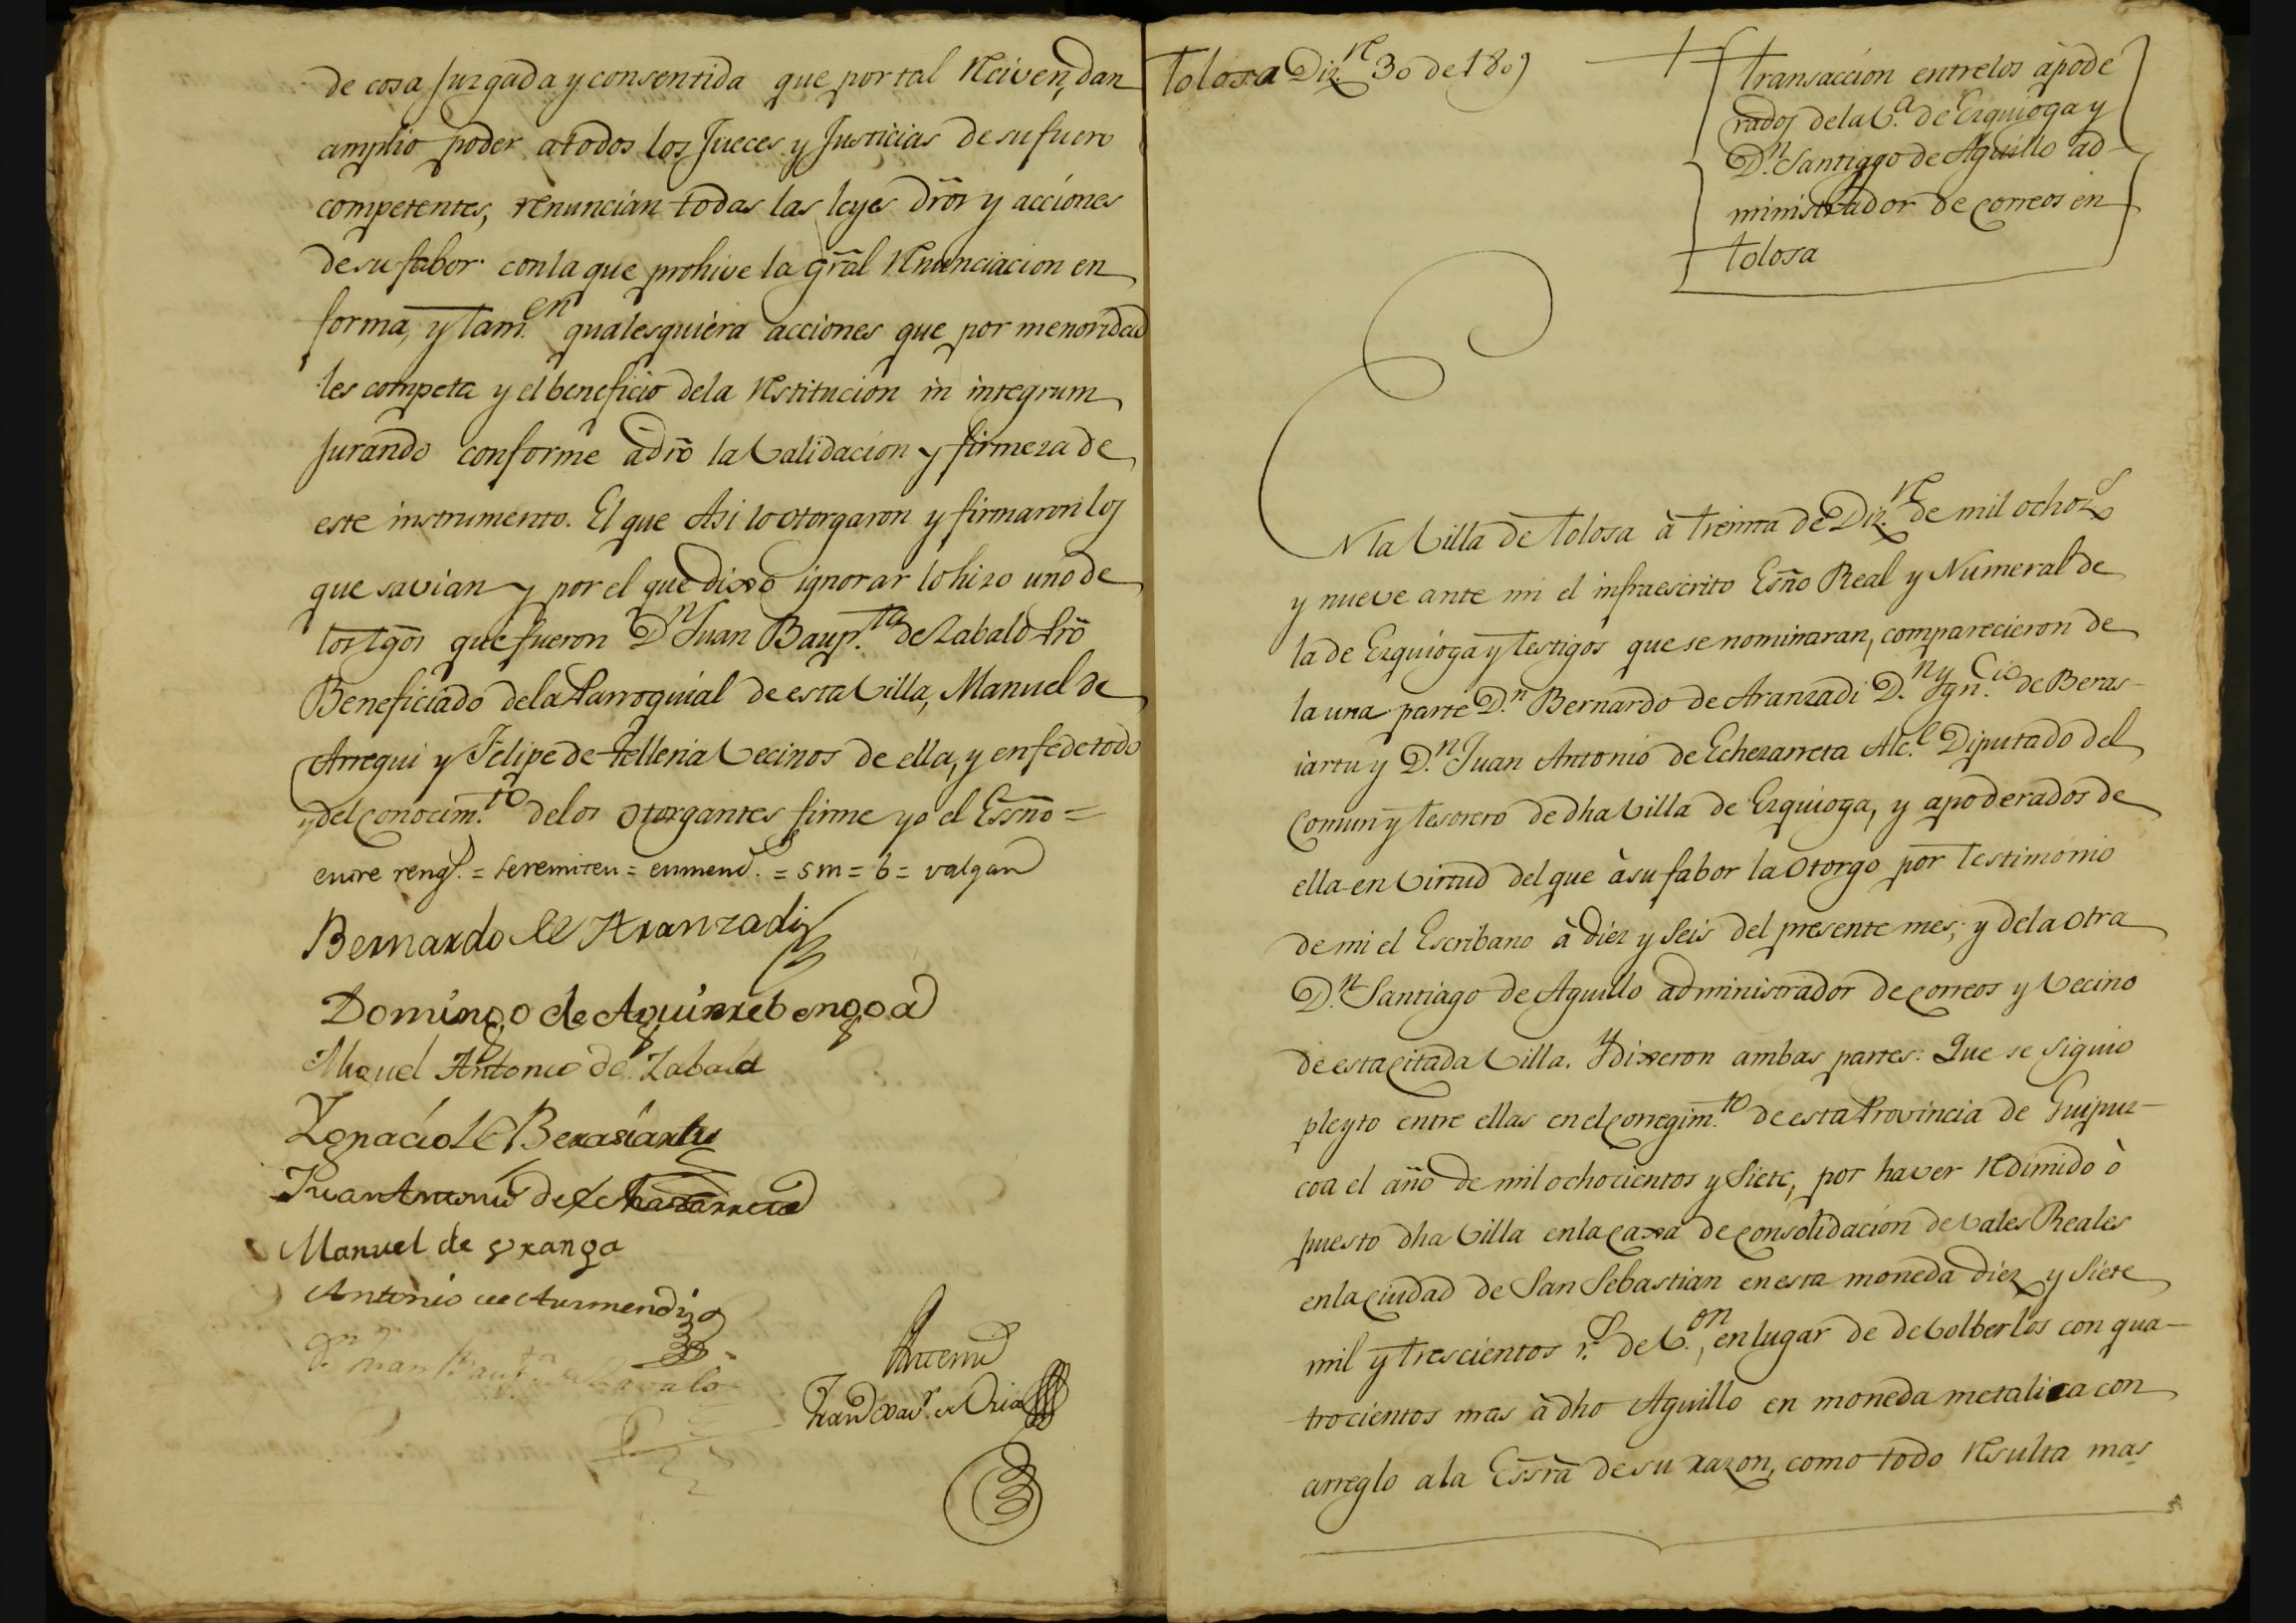 de cosa Juzgada y consentida que por tal reciven, dan
amplio poder a todos los Jueces y Justicias de su fuero
competentes, renuncian todas las leyes dr̃os y acciones
de su fabor con la que prohive la gr̃al renunciacion en
forma, y tam.en qualesquiera acciones que por menoridad
les competa y el beneficio dela restitucion in integrum
Jurando conforme à dr̃o la Validacion y firmeza de
este instrumento. El que Asi lo otorgaron y firmaron los
que savian y por el que dixo ignorar lo hizo uno de
los tg̃os que fueron D.n Juan Baup.ta de Zabalo Pr̃o
Beneficiado dela Parroquial de esta Villa, Manuel de
Arregui y Felipe de Telleria Vecinos de ella, y en fe de todo
y del conocim.to delos otorgantes firme yo el Ess̃no =
entre reng.s = se remiten = enmend.s = sm = b = valgan
Bernardo de Aranzadi
Domingo de Aguirrebengoa
Miguel Antonio de Zabala
Ygnacio de Berasiartu
Juan Antonio de Echezarreta
Manuel de Aranga
Antonio de Aurmendi
D.n Juan Baut.ta de Zavalo
Antemi
Fran.co Xav.r de Oria
Tolosa Diz.re 30 de 1809
Transaccion entre los apode
rados dela V.a de Ezquioga y
D.n Santiago de Aguillo ad-
ministrador de correos en
Tolosa
En la Villa de Tolosa à treinta de Diz.re de mil ochoz.s
y nueve ante mi el infraescrito Es̃no Real y Numeral de
la de Ezquioga y testigos que se nominaran, comparecieron de
la una parte D.n Bernardo de Aranzadi D.n Ygn.cio de Beras-
iartu y D.n Juan Antonio de Echezarreta Alc.e Diputado del
Comun y tesorero de dha Villa de Ezquioga, y apoderados de
ella en Virtud del que à su fabor la otorgo por testimonio
de mi el Escribano à diez y seis del presente mes; y dela otra
D.n Santiago de Aguillo administrador de correos y Vecino
de esta citada Villa. Y dixeron ambas partes: Que se siguio
pleyto entre ellas en el corregim.to de esta Provincia de Guipuz-
coa el año de mil ochocientos y siete, por haver redimido ò
puesto dha Villa en la caxa de consolidacion de Vales Reales
en la ciudad de San Sebastian en esta moneda diez y siete
mil y trescientos r.s de V.on, en lugar de debolberlos con qua-
trocientos mas à dho Aguillo en moneda metalica con
arreglo a la Ess̃ra de su razon, como todo resulta mas